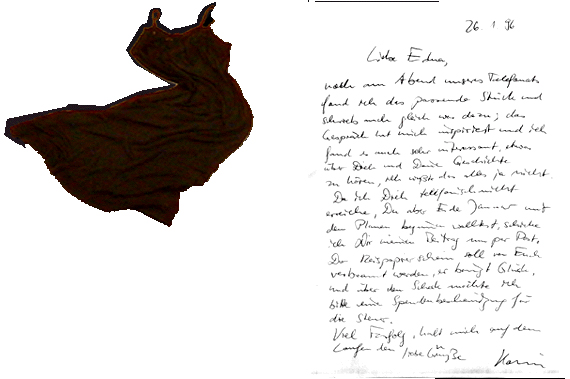 26. 1. 96
Liebe Edna,
noch am Abend unseres Telefonats
fand ich das passende Stück und
schrieb auch gleich was dazu; das
Gespräch hat mich inspiriert und ich
fand es auch sehr interessant, etwas
über Dich und Deine Geschichte
zu hören, ich wußte das alles ja nicht.
Da ich Dich telefonisch nicht
erreiche, Du aber Ende Januar mit
dem Planen beginnen wolltest, schicke
ich Dir meinen Beitrag nun per Post.
Der Reispapierschein soll von Euch
verbrannt werden, er bringt Glück,
und über den Scheck möchte ich
bitte eine Spendenbescheinigung für
die Steuer.
Viel Erfolg, halt mich auf dem
Laufenden, liebe Grüße